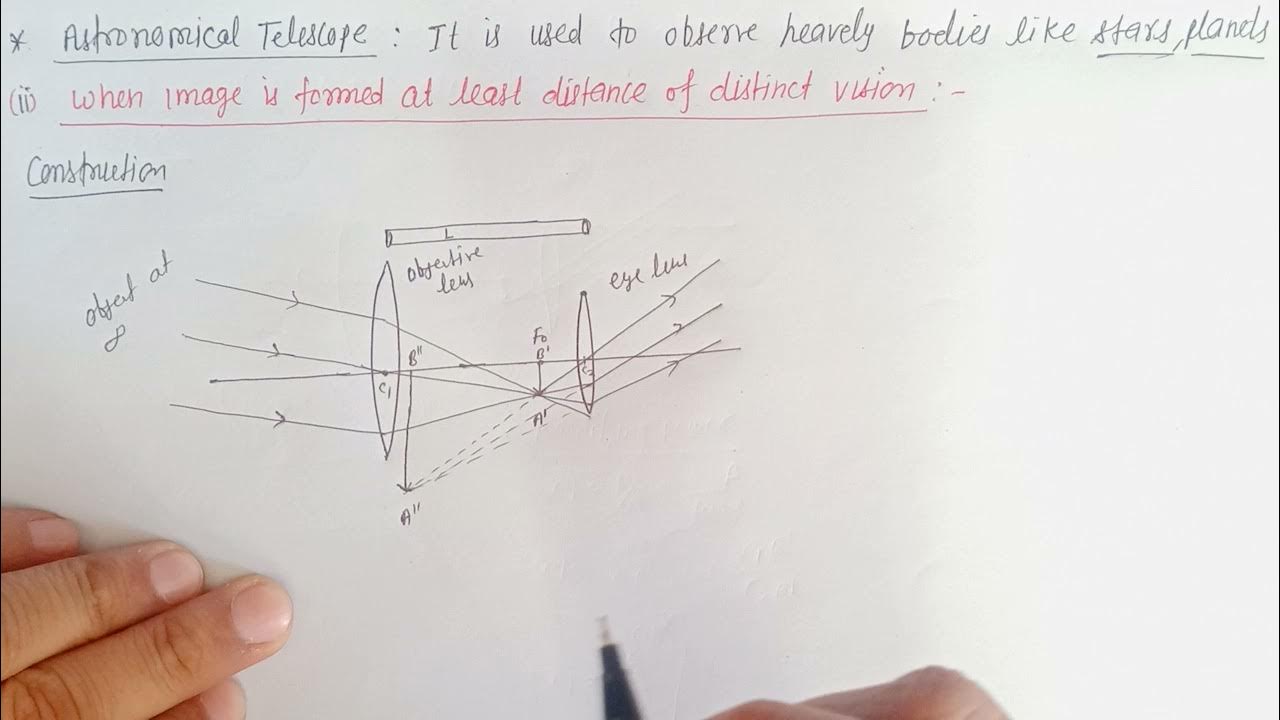 * Astronomical Telescope : It is used to observe heavely bodies like stars, planels
(ii) when image is formed at least distance of distinct vision : -
Construction
L
objective
lens
eye lens
object at
∞
Fo
B"
B'
C1
C2
A'
A"